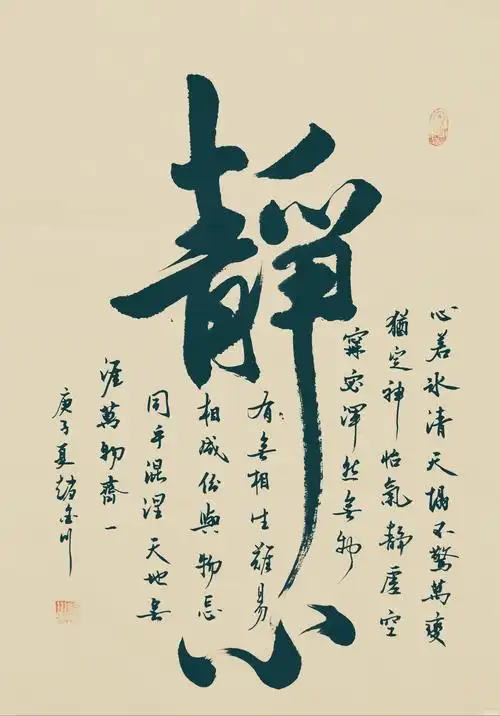 靜心
心若冰清天塌不驚萬變
猶定神怡氣靜虛空
甯宓渾然無物
有無相生難易
相成份與物忘
同乎混涅天地無
涯萬物齊一
庚子夏趙金川